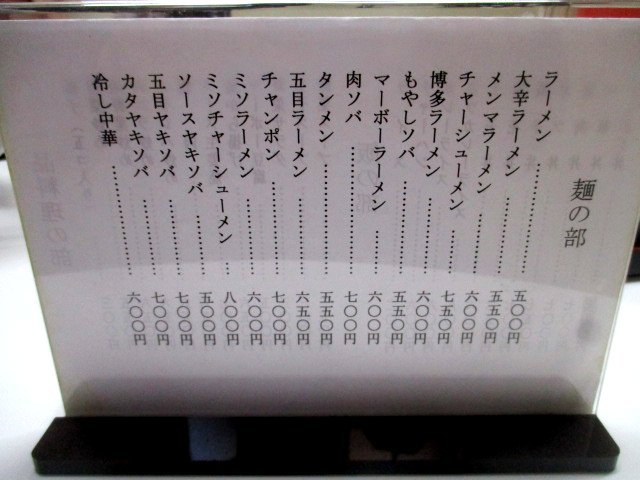 麺の部
ラーメン………………五〇〇円
大辛ラーメン…………五五〇円
メンマラーメン………六〇〇円
チャーシューメン……七五〇円
博多ラーメン…………六〇〇円
もやしソバ……………五五〇円
マーボーラーメン……六〇〇円
肉ソバ…………………七〇〇円
タンメン………………五五〇円
五目ラーメン…………六五〇円
チャンポン……………七〇〇円
ミソラーメン…………六〇〇円
ミソチャーシューメン…八〇〇円
ソースヤキソバ………五〇〇円
五目ヤキソバ…………七〇〇円
カタヤキソバ…………七〇〇円
冷し中華………………六〇〇円